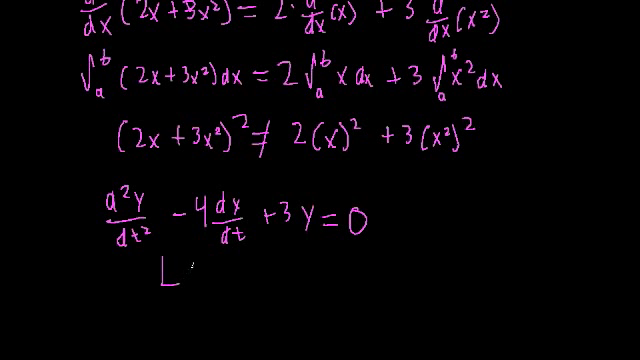 d/dx (2x + 3x²) = 2· d/dx (x) + 3 d/dx (x²)
∫ₐᵇ (2x+3x²)dx = 2 ∫ₐᵇ x dx + 3 ∫ₐᵇ x² dx
(2x + 3x²)² ≠ 2(x)² + 3(x²)²
d²y/dt² - 4 dy/dt + 3y = 0
L